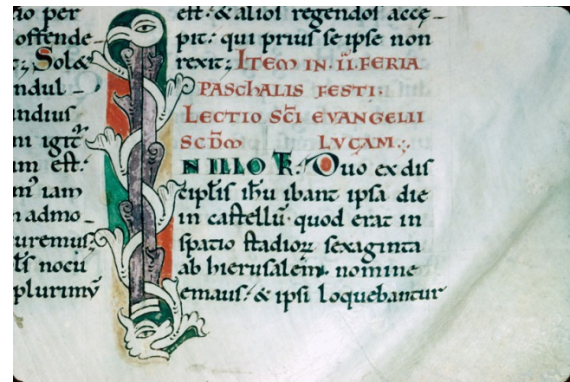 io per
offende-
t; Sol&
ndul-
ndius
m igit̄
am est:
m̄ iam
n admo-
uremus:
ls nocu
plurimū
est: & alios regendos acce-
pit: qui prius se ipse non
rexit; ITEM IN II. FERIA
PASCHALIS FESTI:
LECTIO SC̄I EVANGELII
SCD̄M LVCAM:
N ILLO T̄R. Duo ex dis
ciplis ihu ibant ipsa die
in castellū quod erat in
spatio stadioꝝ sexaginta
ab hierusalem nomine
emaus: & ipsi loquebantur